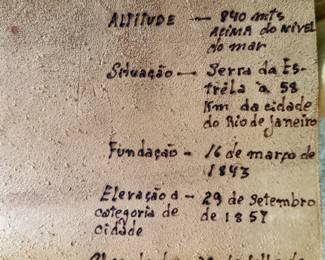 ALTITUDE — 840 mts
ACIMA do NIVEL
do mar
Situação — Serra da Es-
trêla à 58
Km da cidade
do Rio de janeiro
Fundação - 16 de março de
1843
Elevação a - 29 de setembro
categoria de de 1857
cidade